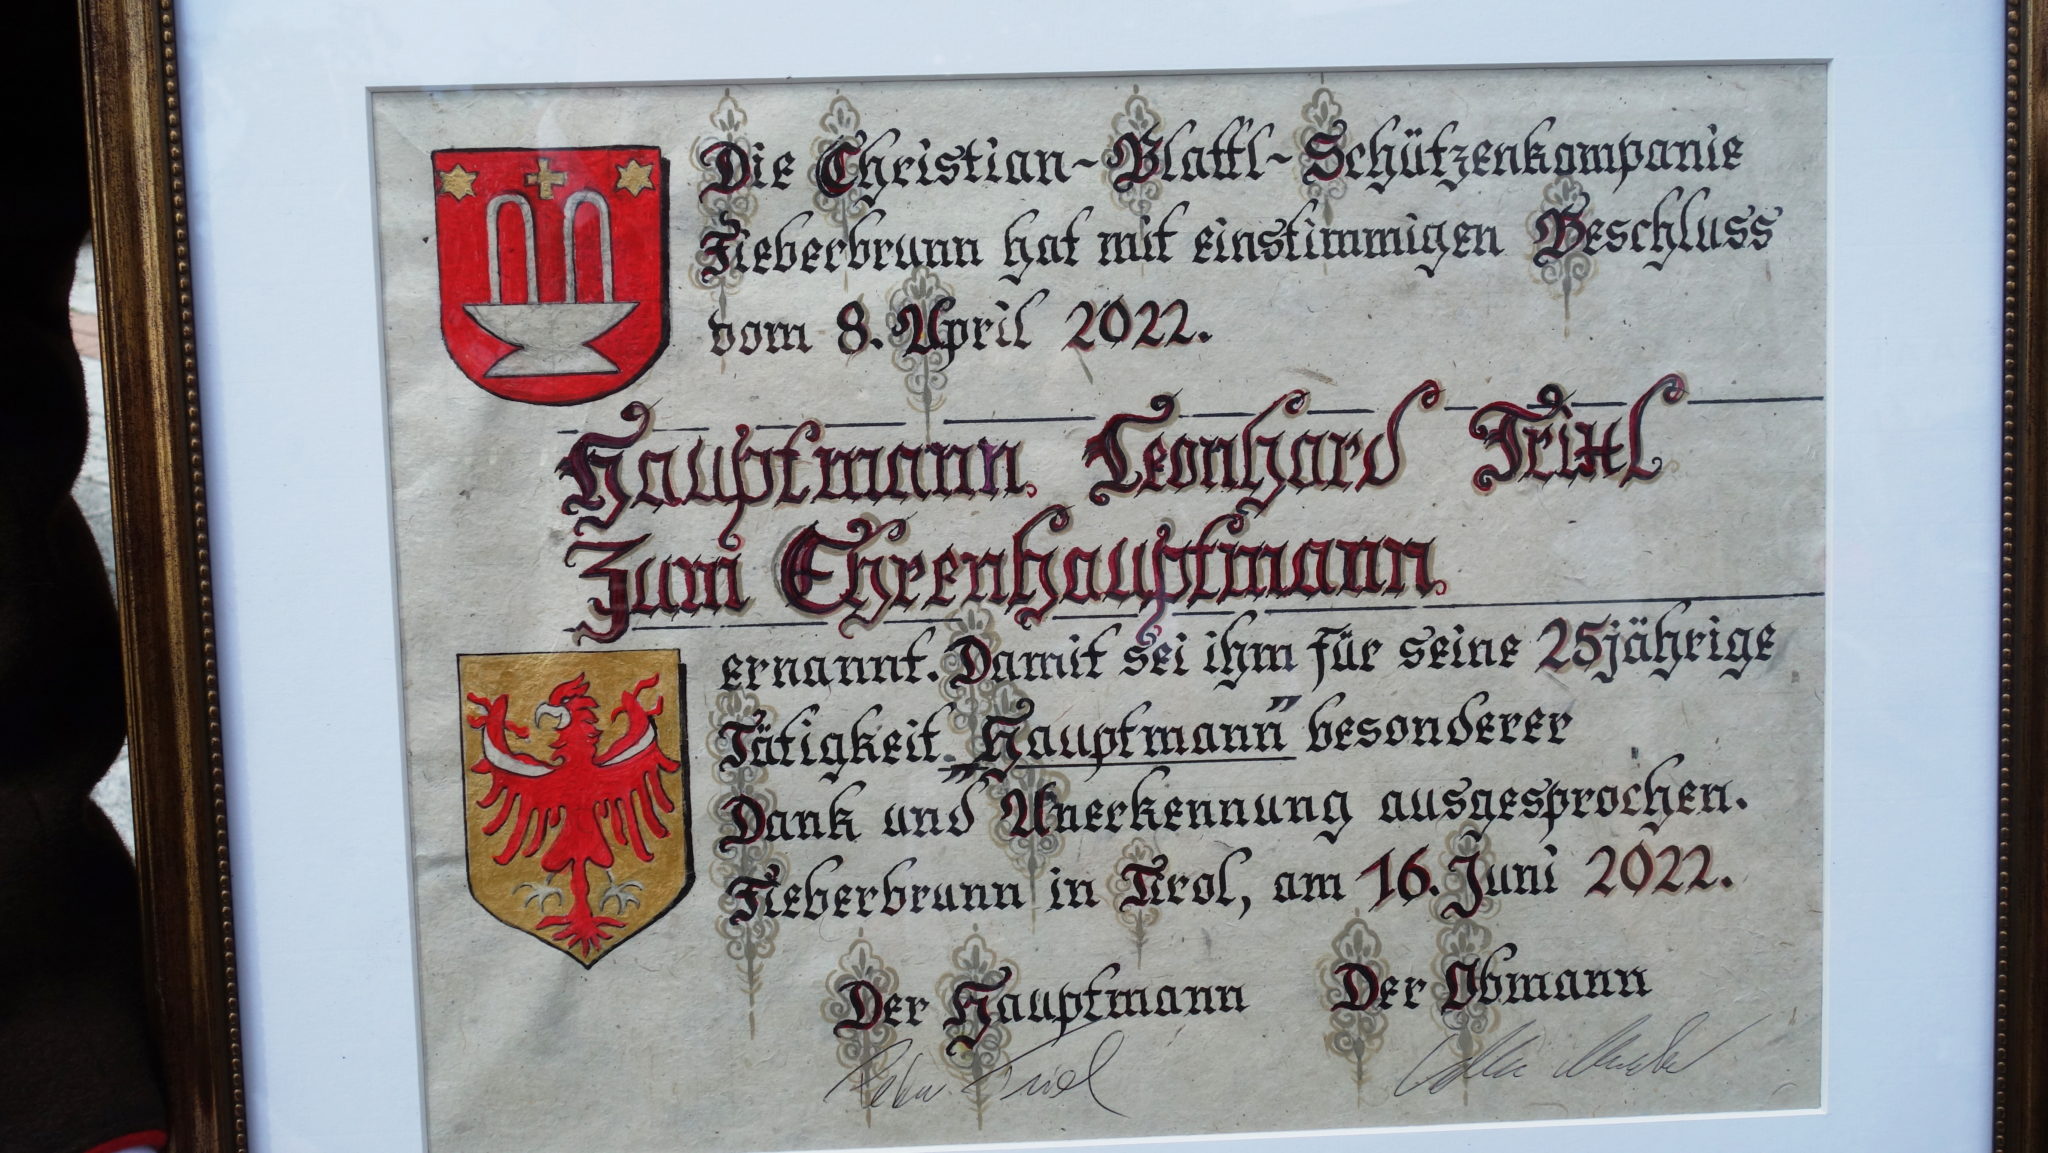 Die Christian-Blattl-Schützenkompanie
Fieberbrunn hat mit einstimmigen Beschluss
vom 8. April 2022.
Hauptmann Leonhard Trixl
Zum Ehrenhauptmann
ernannt. Damit sei ihm für seine 25jährige
Tätigkeit „Hauptmann" besonderer
Dank und Anerkennung ausgesprochen.
Fieberbrunn in Tirol, am 16. Juni 2022.
Der Hauptmann Der Obmann